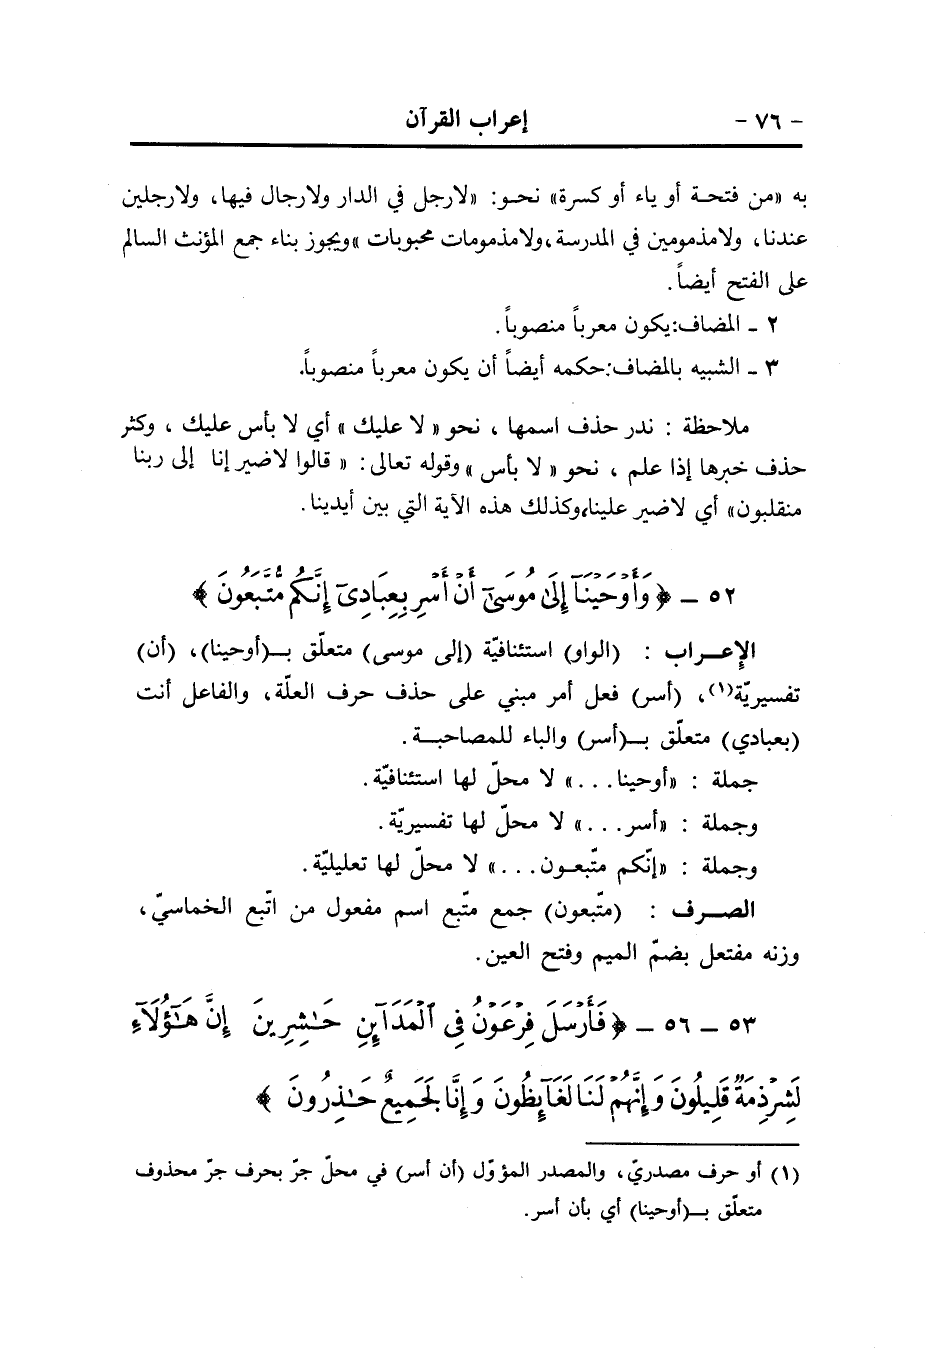 - ٧٦ - إعراب القرآن
به «من فتحـة أو ياء أو كسرة» نحـو: «لارجل في الدار ولارجال فيها، ولارجلين
عندنا، ولامذمومين في المدرسة،ولامذمومات محبوبات »ويجوز بناء جمع المؤنث السالم
على الفتح أيضاً.
٢ ـ المضاف:يكون معرباً منصوباً.
٣ ـ الشبيه بالمضاف:حكمه أيضاً أن يكون معرباً منصوباً.
ملاحظة : ندر حذف اسمها ، نحو « لا عليك » أي لا بأس عليك ، وكثر
حذف خبرها إذا علم ، نحو « لا بأس » وقوله تعالى: « قالوا لاضير إنا إلى ربنا
منقلبون» أي لاضير علينا،وكذلك هذه الآية التي بين أيدينا.
٥٢ ـ ﴿ وَأَوْحَيْنَآ إِلَىٰ مُوسَىٰٓ أَنْ أَسْرِ بِعِبَادِىٓ إِنَّكُم مُّتَّبَعُونَ ﴾
الإعــراب : (الواو) استئنافيّة (إلى موسى) متعلّق بـ(أوحينا)، (أن)
تفسيريّة(١)، (أسر) فعل أمر مبني على حذف حرف العلّة، والفاعل أنت
(بعبادي) متعلّق بـ(أسر) والباء للمصاحبـة.
جملة : «أوحينا...» لا محلّ لها استئنافيّة.
وجملة : «أسر...» لا محلّ لها تفسيريّة.
وجملة : «إنّكم متّبعـون...» لا محلّ لها تعليليّة.
الصــرف : (متّبعون) جمع متّبع اسم مفعول من اتّبع الخماسيّ،
وزنه مفتعل بضمّ الميم وفتح العين.
٥٣ ـ ٥٦ ـ ﴿ فَأَرْسَلَ فِرْعَوْنُ فِى ٱلْمَدَآئِنِ حَـٰشِرِينَ إِنَّ هَـٰٓؤُلَآءِ
لَشِرْذِمَةٌ قَلِيلُونَ وَإِنَّهُمْ لَنَا لَغَآئِظُونَ وَإِنَّا لَجَمِيعٌ حَـٰذِرُونَ ﴾
(١) أو حرف مصدريّ، والمصدر المؤوّل (أن أسر) في محلّ جرّ بحرف جرّ محذوف
متعلّق بـ(أوحينا) أي بأن أسر.